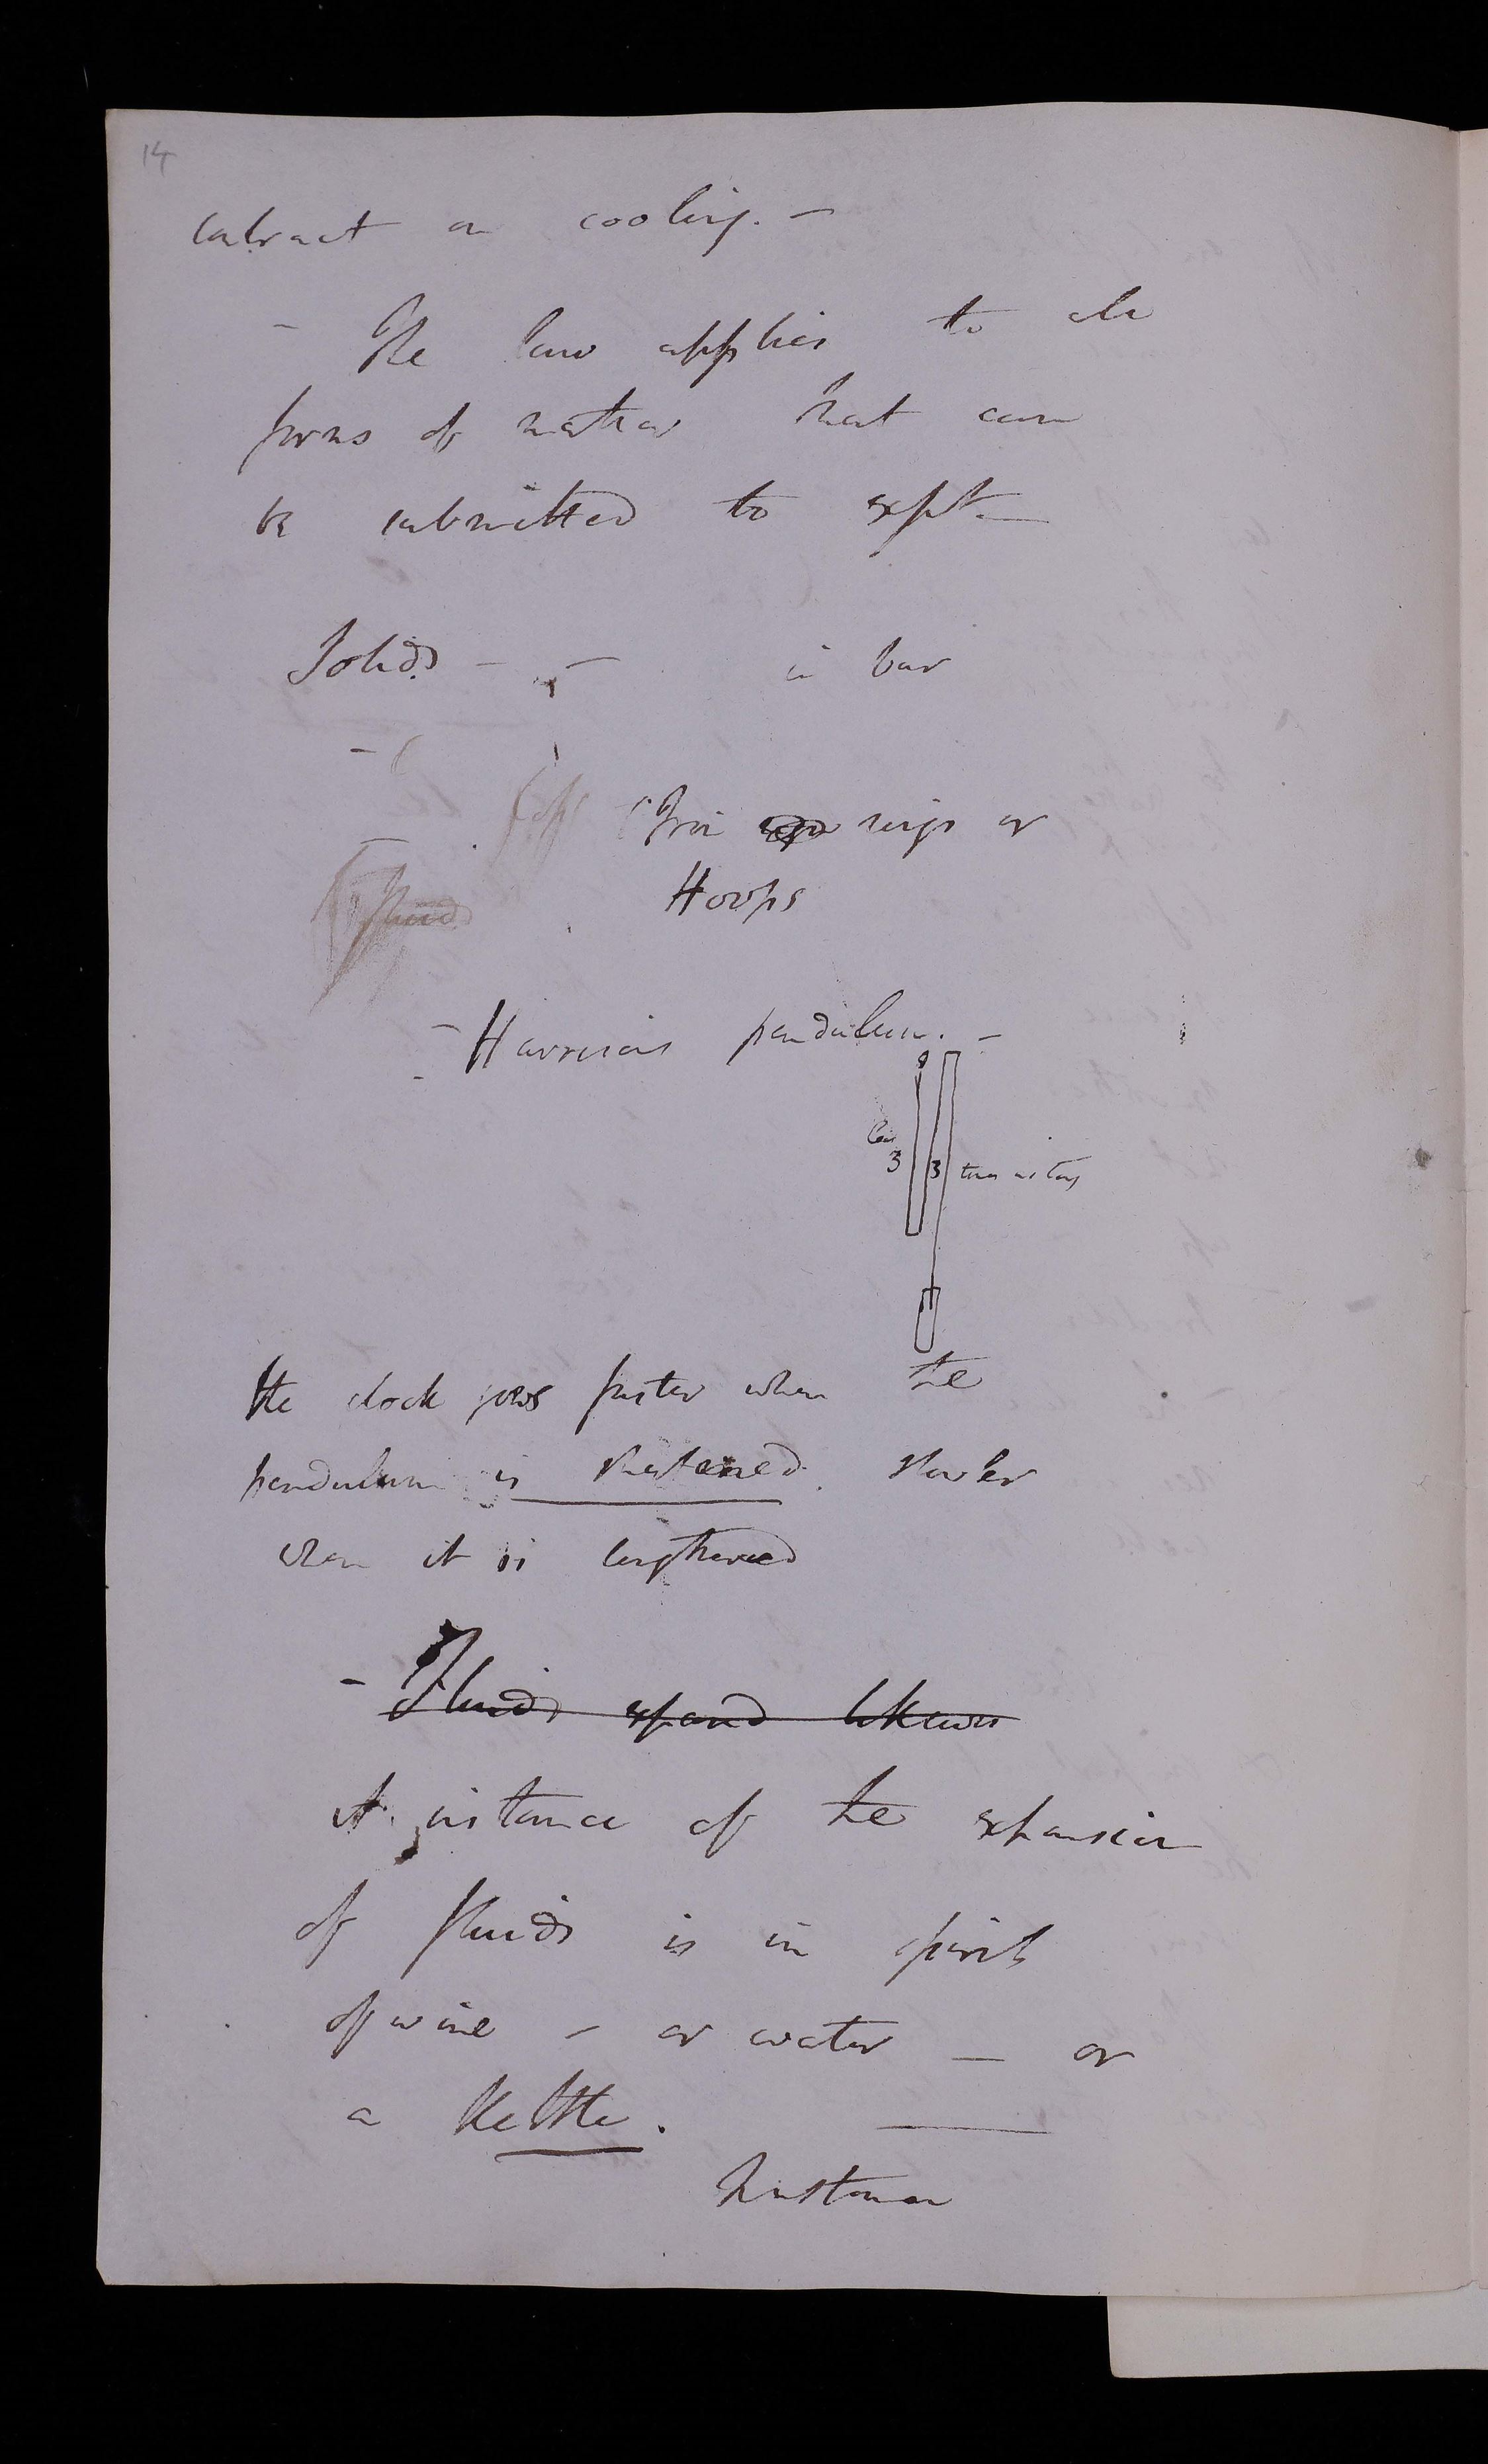 14
contract on cooling. —
- The law applies to all
forms of matter that can
be submitted to expt. —
Solids - - in bar
Iron rings or
Hoops
- Harrisons pendulum. -
3 3
the clock goes faster when the
pendulum is shortened. slower
when it is lengthened
- Fluids expand likewise
A instance of the expansion
of fluids is in spirits
of wine - or water — or
a Kettle. —